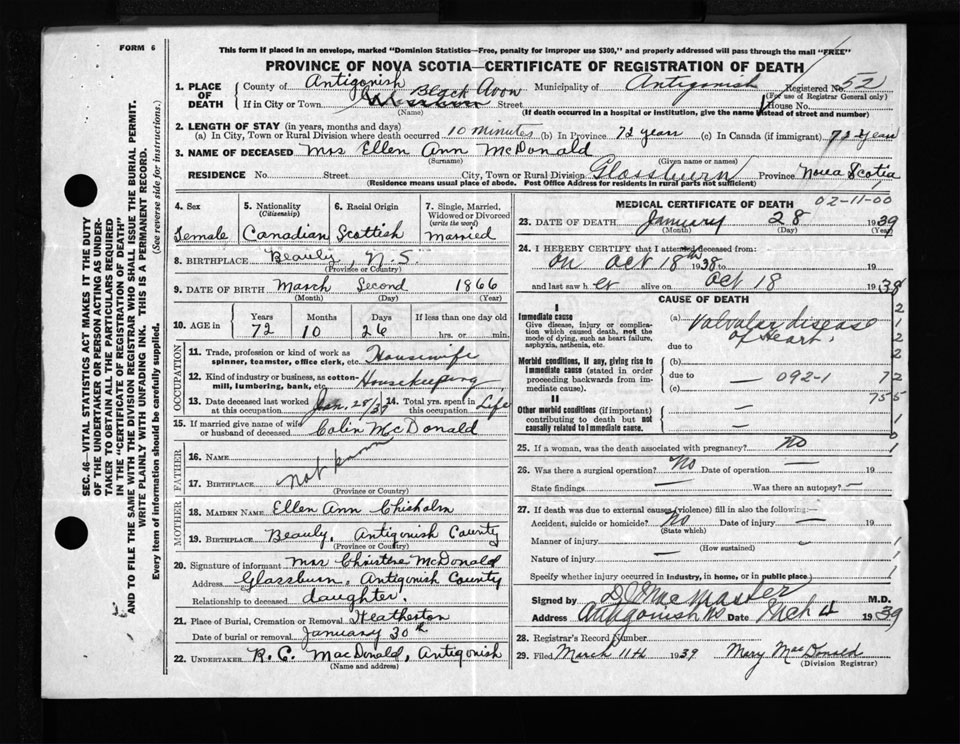 FORM 6
This form if placed in an envelope, marked "Dominion Statistics—Free, penalty for improper use $300," and properly addressed will pass through the mail "FREE"
PROVINCE OF NOVA SCOTIA—CERTIFICATE OF REGISTRATION OF DEATH
1. PLACE OF DEATH
County of Antigonish Municipality of Antigonish Registered No. 52
(For use of Registrar General only)
If in City or Town Black Avon Street House No.
(Name) (If death occurred in a hospital or institution, give the name instead of street and number)
2. LENGTH OF STAY (in years, months and days)
(a) In City, Town or Rural Division where death occurred 10 minutes (b) In Province 72 year (c) In Canada (if immigrant) 72 year
3. NAME OF DECEASED Mrs Ellen Ann McDonald
(Surname) (Given name or names)
RESIDENCE No. Street. City, Town or Rural Division Glassburn Province Nova Scotia
(Residence means usual place of abode. Post Office Address for residents in rural parts not sufficient)
4. Sex
Female
5. Nationality (Citizenship)
Canadian
6. Racial Origin
Scottish
7. Single, Married, Widowed or Divorced (write the word)
Married
8. BIRTHPLACE Beauly, N.S.
(Province or Country)
9. DATE OF BIRTH March Second 1866
(Month) (Day) (Year)
10. AGE in Years Months Days If less than one day old
72 10 26 hrs. or min.
OCCUPATION
11. Trade, profession or kind of work as spinner, teamster, office clerk, etc. Housewife
12. Kind of industry or business, as cotton-mill, lumbering, bank, etc. Housekeeping
13. Date deceased last worked at this occupation Jan. 28/39 14. Total yrs. spent in this occupation Life
15. If married give name of wife or husband of deceased Colin McDonald
FATHER
16. NAME
not known
17. BIRTHPLACE
(Province or Country)
MOTHER
18. MAIDEN NAME Ellen Ann Chisholm
19. BIRTHPLACE Beauly, Antigonish County
(Province or Country)
20. Signature of informant Mrs Christene McDonald
Address Glassburn, Antigonish County
Relationship to deceased daughter.
21. Place of Burial, Cremation or Removal Heatherton
Date of burial or removal January 30th
22. UNDERTAKER R. C. MacDonald, Antigonish
(Name and address)
MEDICAL CERTIFICATE OF DEATH
02-11-00
23. DATE OF DEATH January 28 1939
(Month) (Day) (Year)
24. I HEREBY CERTIFY that I attended deceased from:
on Oct 18th 1938 to 19
and last saw her alive on Oct 18 1938
CAUSE OF DEATH
I
Immediate cause
Give disease, injury or complication which caused death, not the mode of dying, such as heart failure, asphyxia, asthenia, etc.
(a) Valvular disease of Heart.
due to
Morbid conditions, if any, giving rise to immediate cause (stated in order proceeding backwards from immediate cause).
(b)
due to — 092-1
(c)
II
Other morbid conditions (if important) contributing to death but not causally related to immediate cause.
25. If a woman, was the death associated with pregnancy? no
26. Was there a surgical operation? No Date of operation — 19
State findings — Was there an autopsy? -
27. If death was due to external causes (violence) fill in also the following:—
Accident, suicide or homicide? No Date of injury — 19
(State which)
Manner of injury
(How sustained)
Nature of injury —
Specify whether injury occurred in industry, in home, or in public place.
Signed by D J MacMaster M.D.
Address Antigonish NS Date Mch 4 1939
28. Registrar's Record Number
29. Filed March 11th 1939 Mary MacDonald
(Division Registrar)
SEC. 46—VITAL STATISTICS ACT MAKES IT THE DUTY
OF THE UNDERTAKER OR PERSON ACTING AS UNDER-
TAKER TO OBTAIN ALL THE PARTICULARS REQUIRED
IN THE "CERTIFICATE OF REGISTRATION OF DEATH"
AND TO FILE THE SAME WITH THE DIVISION REGISTRAR WHO SHALL ISSUE THE BURIAL PERMIT.
WRITE PLAINLY WITH UNFADING INK. THIS IS A PERMANENT RECORD.
Every item of information should be carefully supplied. (See reverse side for instructions.)